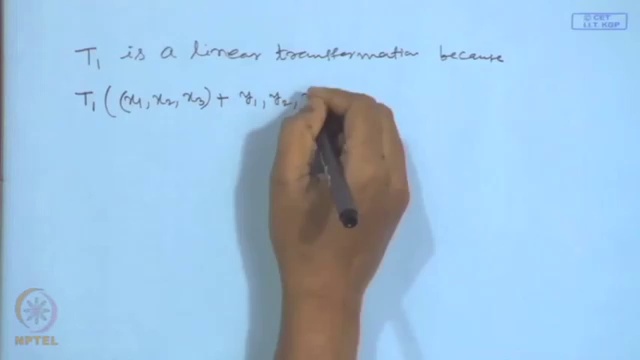 © CET
I.I.T. KGP
T₁ is a linear transformation because
T₁ ( (x₁, x₂, x₃) + y₁, y₂,
NPTEL